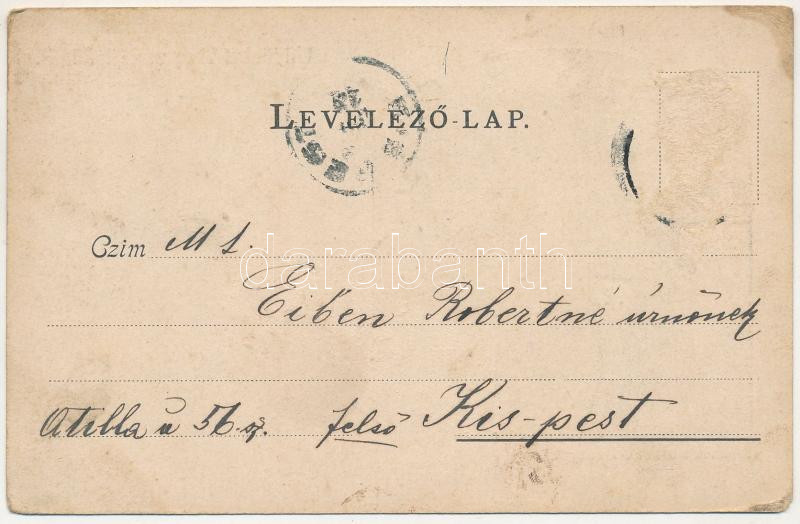 LEVELEZŐ-LAP.
Czim M S.
darabanth
Eiben Robertné úrnőnek
Atilla u 56. sz. felső Kis-pest